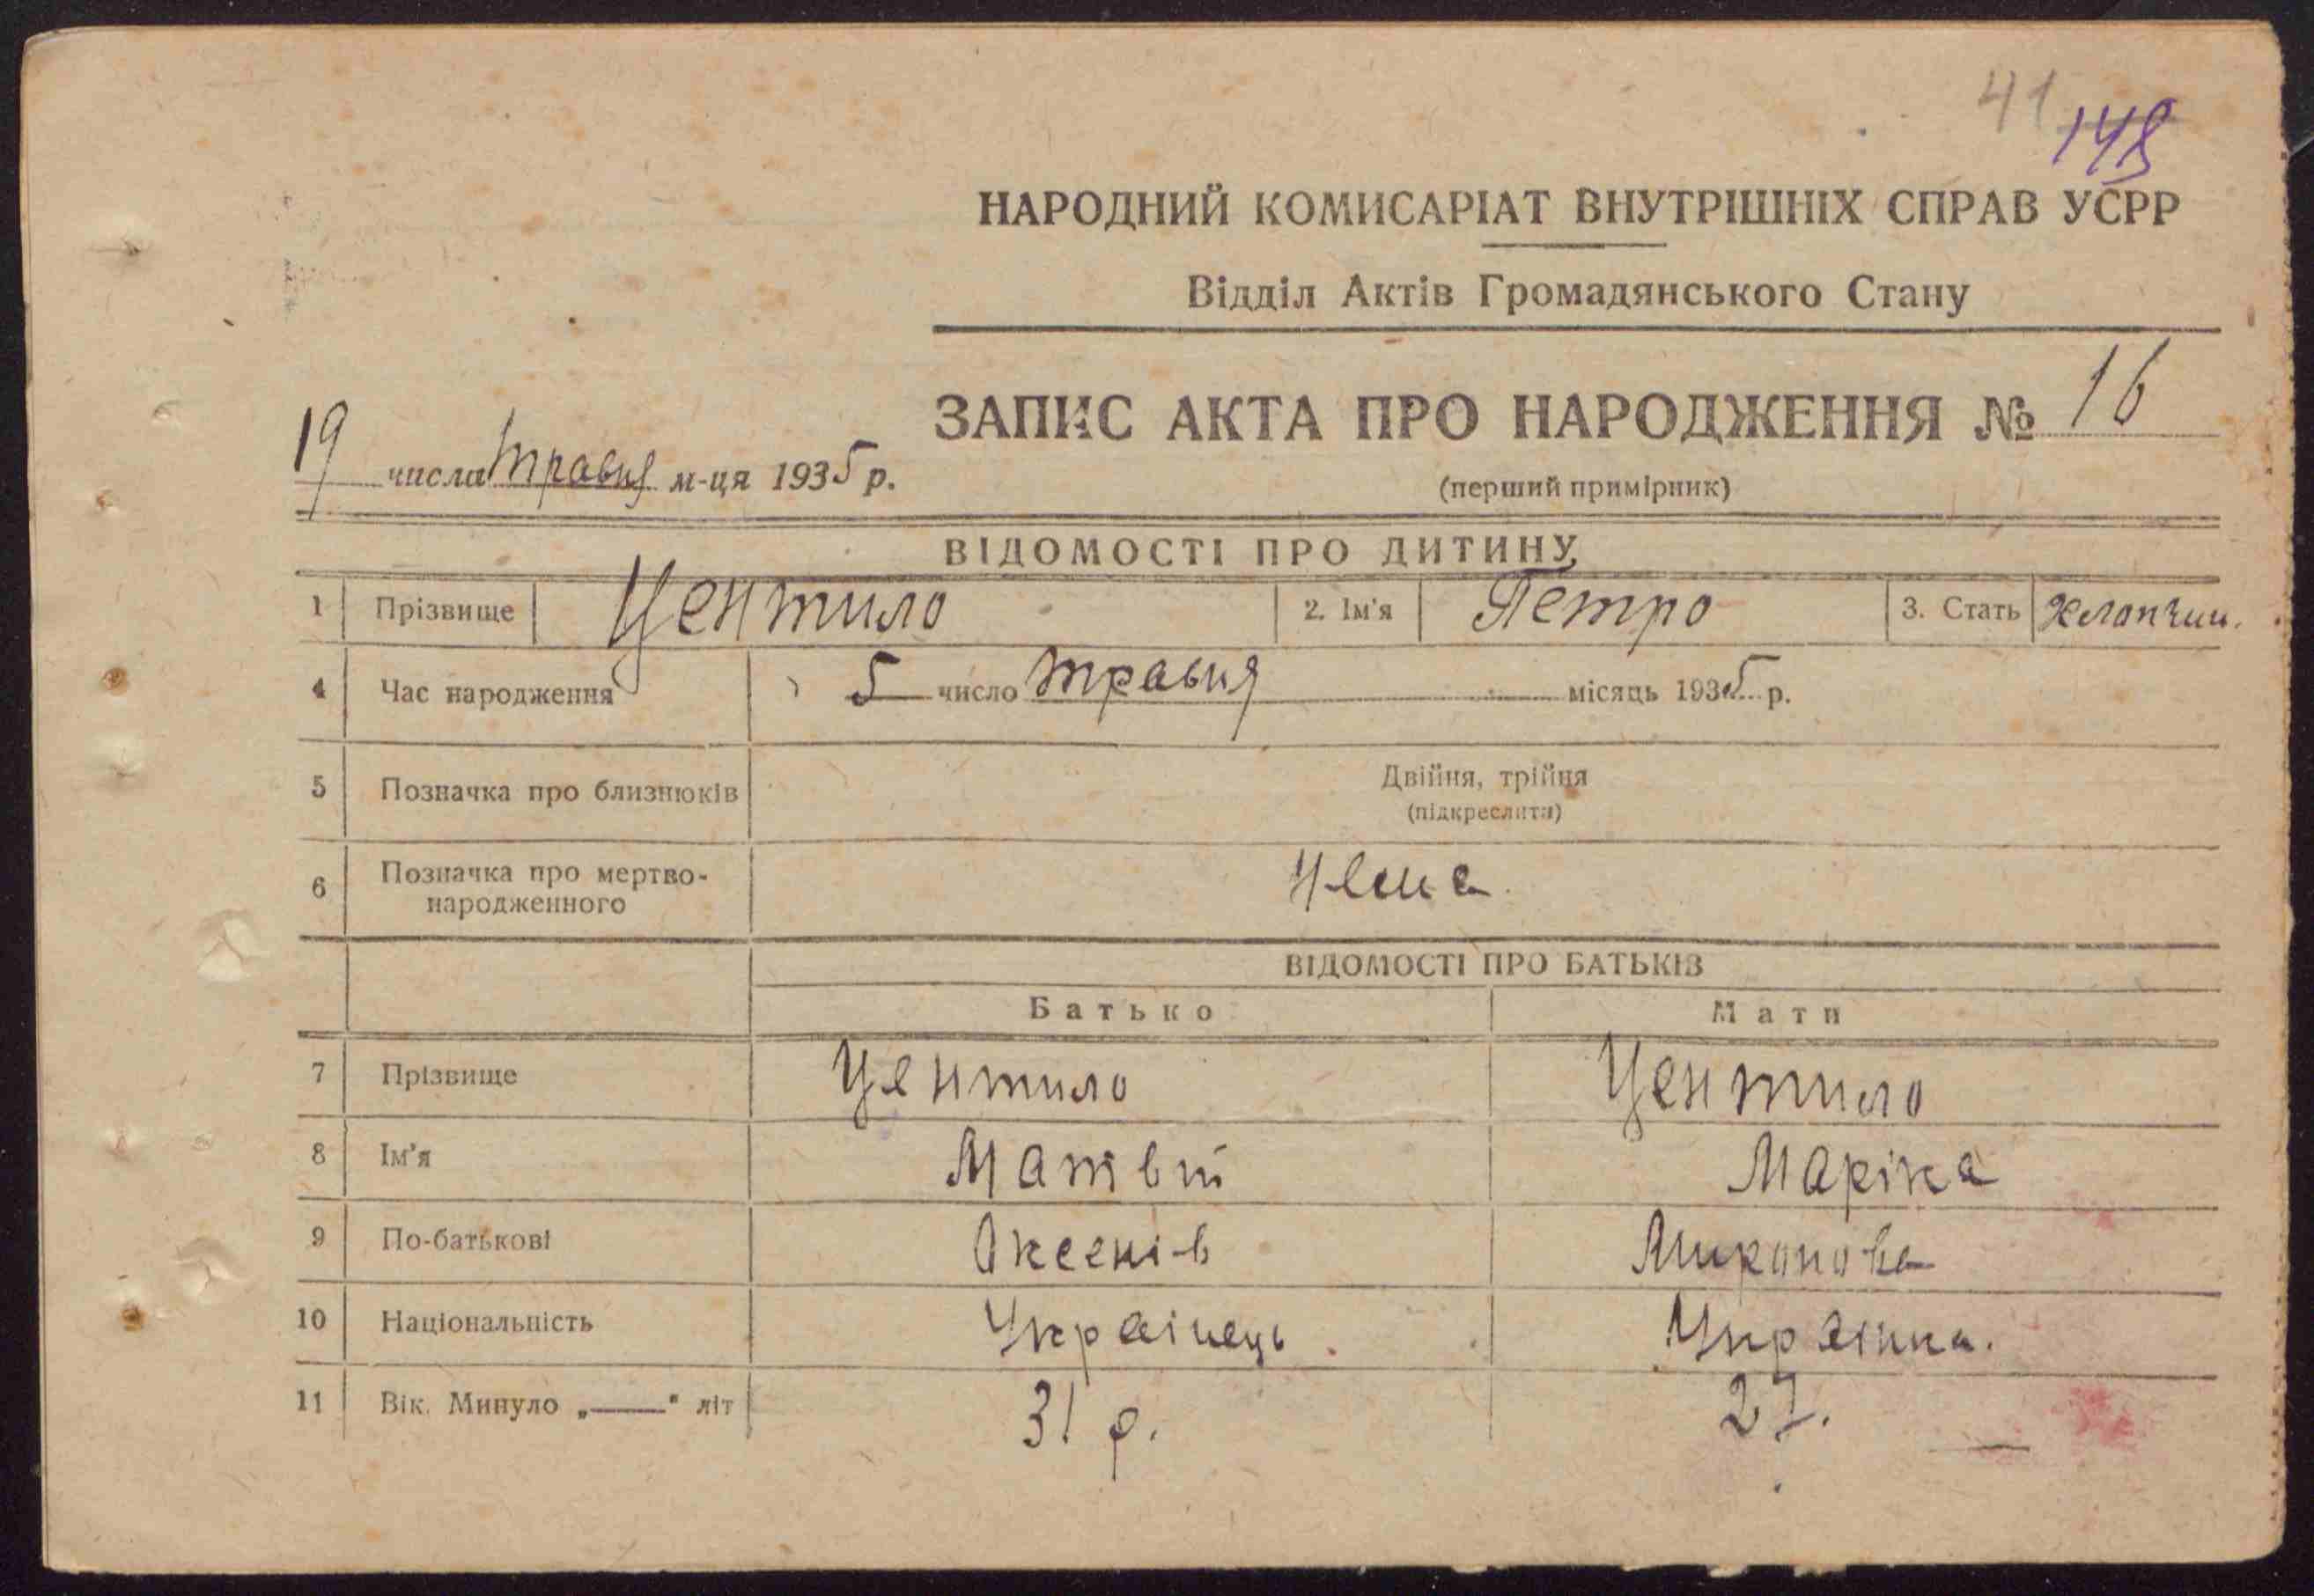 41 148
НАРОДНИЙ КОМИСАРІАТ ВНУТРІШНІХ СПРАВ УСРР
Відділ Актів Громадянського Стану
ЗАПИС АКТА ПРО НАРОДЖЕННЯ № 16
19 числа травня м-ця 1935 р.
(перший примірник)
ВІДОМОСТІ ПРО ДИТИНУ
1 Прізвище Центило 2. Ім'я Петро 3. Стать Хлопчик.
4 Час народження 5 число травня місяць 1935 р.
5 Позначка про близнюків Двійня, трійня
(підкреслити)
6 Позначка про мертво-
народженного Нема.
ВІДОМОСТІ ПРО БАТЬКІВ
Батько Мати
7 Прізвище Центило Центило
8 Ім'я Матвій Маріка
9 По-батькові Аксенів Миронова
10 Національність Українець. Українка.
11 Вік. Минуло „——" літ 31 р. 27.